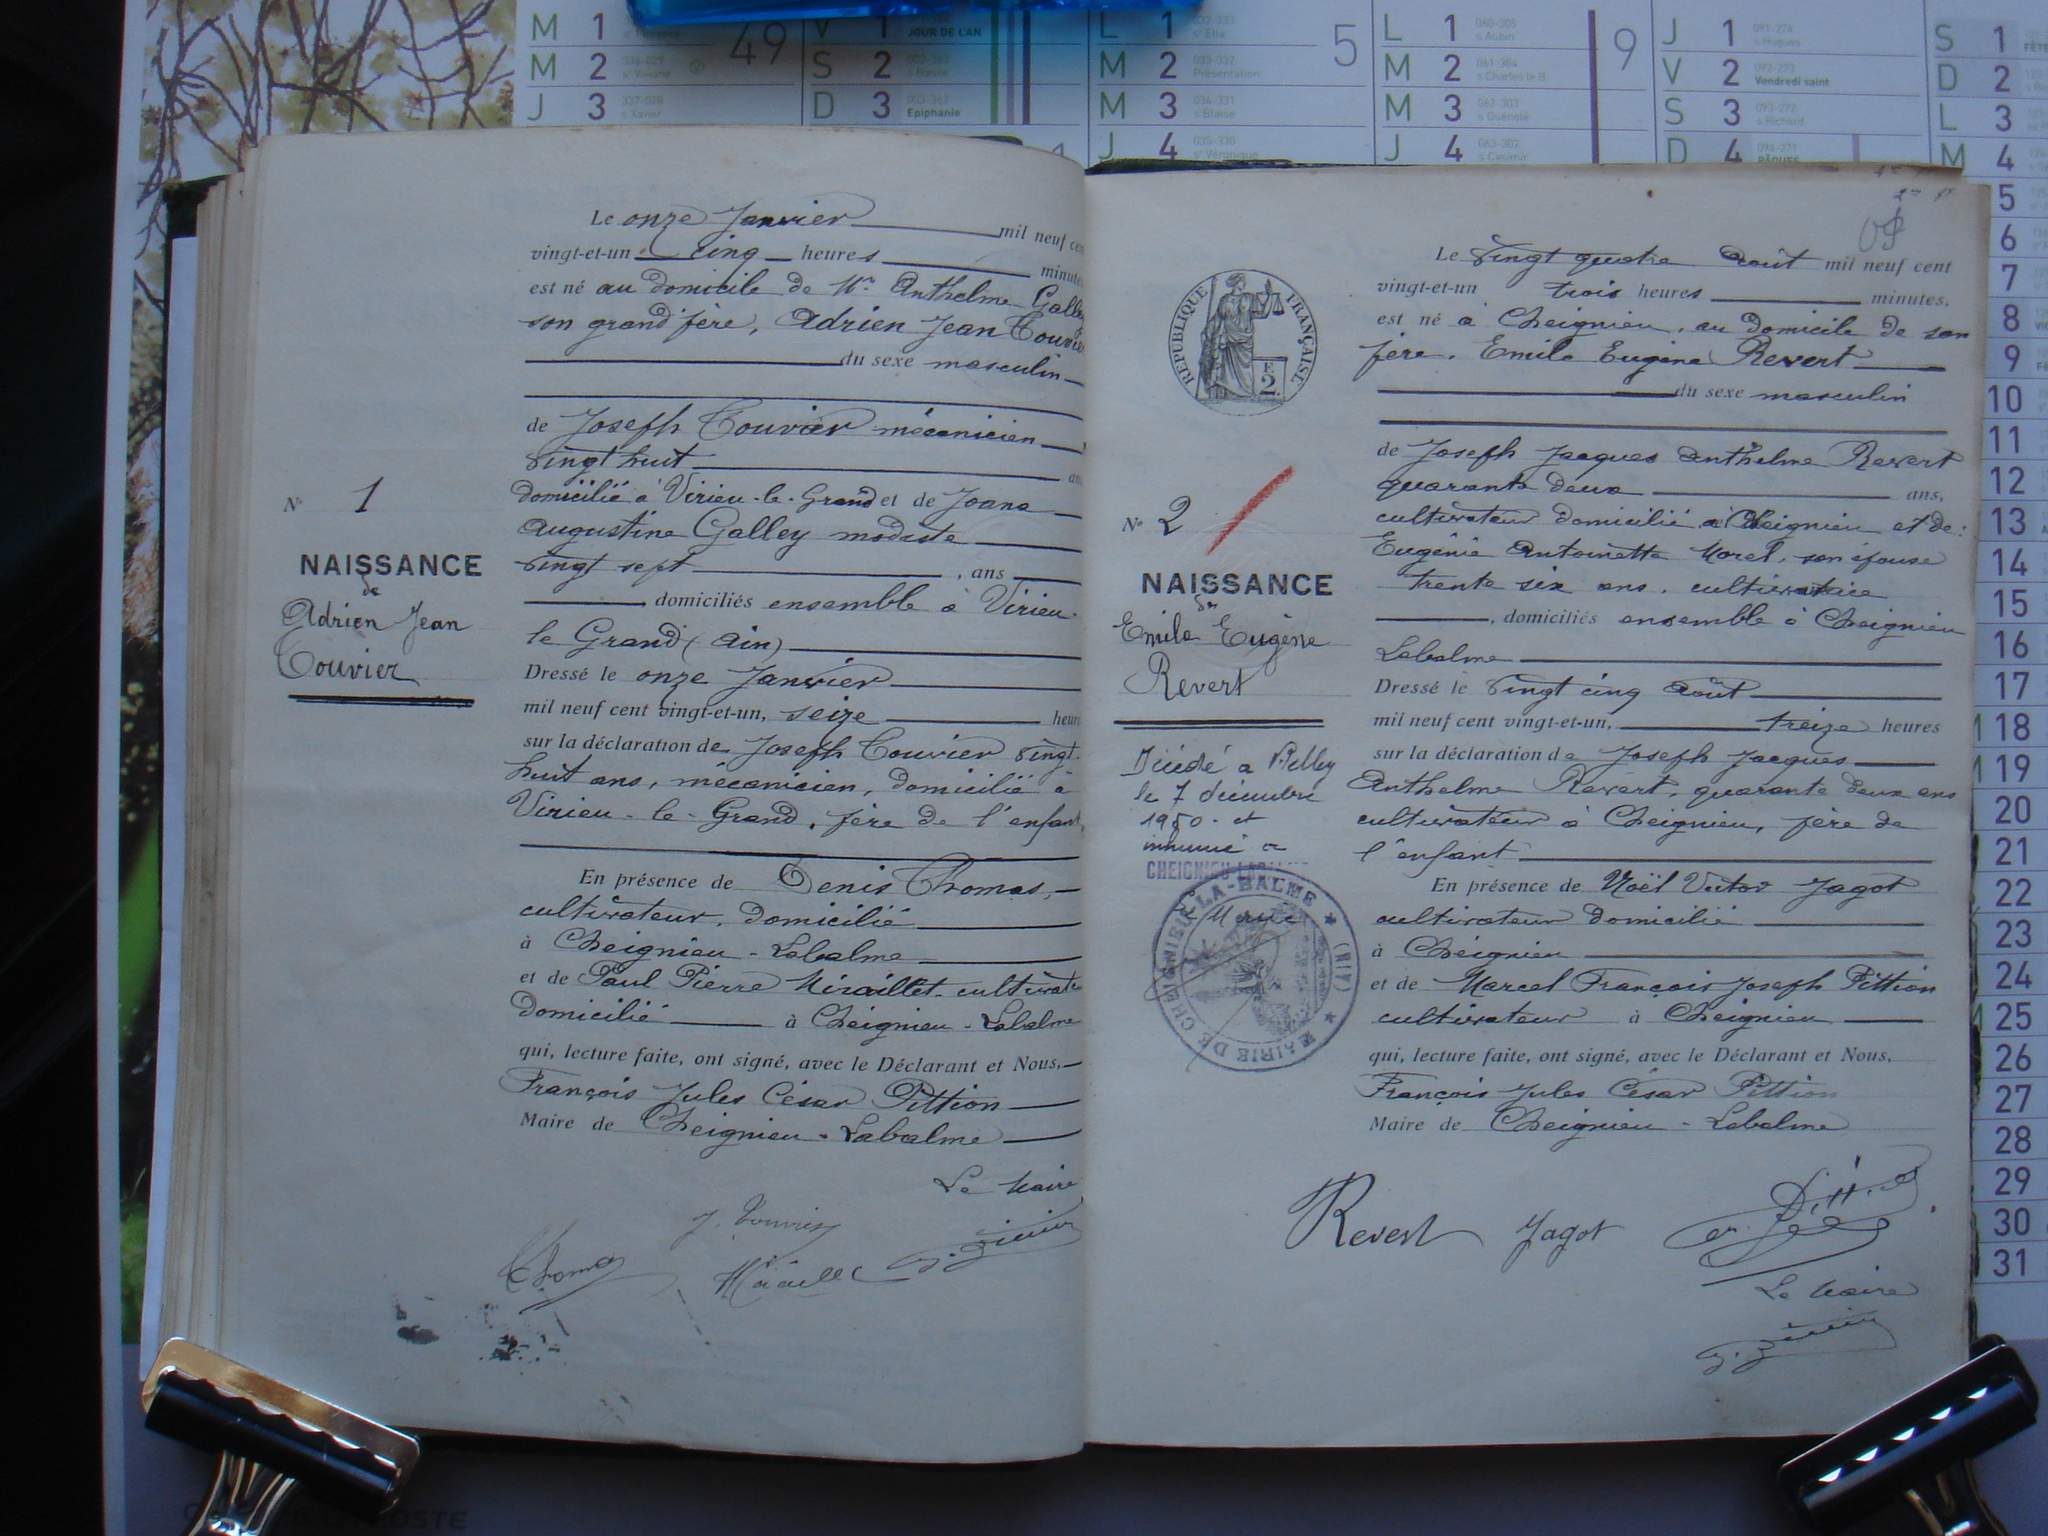 M 1
M 2
J 3
49
V 1 JOUR DE L'AN
S 2
D 3 Epiphanie
L 1
M 2 Présentation
M 3 s Blaise
J 4 se Véronique
5
L 1 s Aubin
M 2 s Charles le B.
M 3 s Guénolé
J 4 s Casimir
9
J 1 s Hugues
V 2 Vendredi saint
S 3 s Richard
D 4 PÂQUES
S 1
D 2
L 3
M 4
5
6
7
8
9
10
11
12
13
14
15
16
17
18
19
20
21
22
23
24
25
26
27
28
29
30
31
N° 1
NAISSANCE
de
Adrien Jean
Touvier
Le onze Janvier mil neuf cent
vingt-et-un cinq heures minutes
est né au domicile de Mr Anthelme Galley
son grand'père, Adrien Jean Touvier
du sexe masculin
de Joseph Touvier mécanicien
vingt huit ans
domicilié à Virieu-le-Grand et de Joana
Augustine Galley modiste
vingt sept , ans
domiciliés ensemble à Virieu-
le Grand (Ain)
Dressé le onze Janvier
mil neuf cent vingt-et-un, seize heures
sur la déclaration de Joseph Touvier vingt-
huit ans, mécanicien, domicilié à
Virieu-le-Grand, père de l'enfant,
En présence de Denis Thomas,
cultivateur, domicilié
à Cheignieu-Labalme
et de Paul Pierre Miraillet cultivateur
domicilié à Cheignieu-Labalme
qui, lecture faite, ont signé, avec le Déclarant et Nous,
François Jules César Pittion
Maire de Cheignieu-Labalme
Le Maire
J. Touvier
Thomas
RÉPUBLIQUE FRANÇAISE
2
N° 2
NAISSANCE
de
Emile Eugène
Revert
Décédé à Belley
le 7 décembre
1950 et
inhumé à
CHEIGNIEU-LABALME
MAIRIE DE CHEIGNIEU-LA-BALME (AIN)
Le vingt quatre Août mil neuf cent
vingt-et-un trois heures minutes,
est né à Cheignieu, au domicile de son
père, Emile Eugène Revert
du sexe masculin
de Joseph Jacques Anthelme Revert
quarante deux ans,
cultivateur domicilié à Cheignieu et de:
Eugénie Antoinette Morel, son épouse
trente six ans, cultivatrice
, domiciliés ensemble à Cheignieu
Labalme
Dressé le vingt cinq Août
mil neuf cent vingt-et-un, treize heures
sur la déclaration de Joseph Jacques
Anthelme Revert, quarante deux ans
cultivateur à Cheignieu, père de
l'enfant
En présence de Noël Victor Jagot
cultivateur domicilié
à Cheignieu
et de Marcel François Joseph Pittion
cultivateur à Cheignieu
qui, lecture faite, ont signé, avec le Déclarant et Nous,
François Jules César Pittion
Maire de Cheignieu-Labalme
Revert Jagot
Le Maire